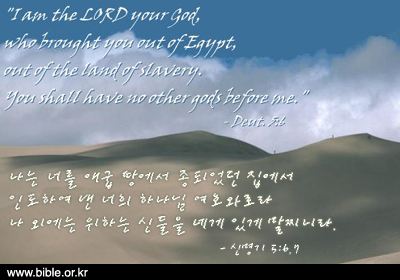 "I am the LORD your God,
who brought you out of Egypt,
out of the land of slavery.
You shall have no other gods before me."
- Deut. 5:6
나는 너를 애굽 땅에서 종되었던 집에서
인도하여 낸 너희 하나님 여호와로라
나 외에는 위하는 신들을 네게 있게 말찌니라.
- 신명기 5:6,7
www.bible.or.kr